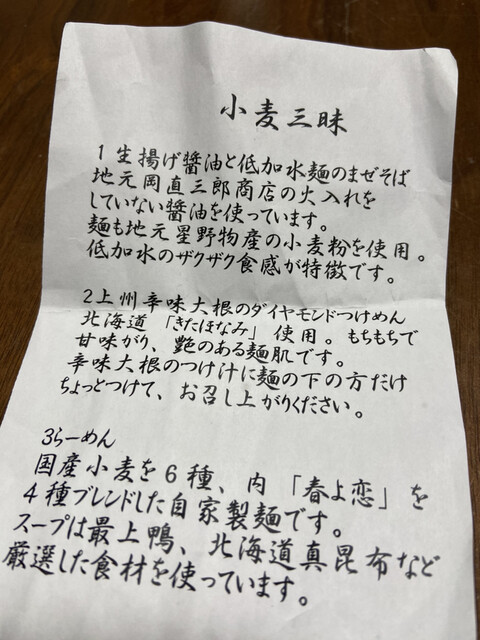 小麦三昧
1生揚げ醬油と低加水麺のまぜそば
地元岡直三郎商店の火入れを
していない醬油を使っています。
麺も地元星野物産の小麦粉を使用。
低加水のザクザク食感が特徴です。
2上州辛味大根のダイヤモンドつけめん
北海道「きたほなみ」使用。もちもちで
甘味がり、艶のある麺肌です。
辛味大根のつけ汁に麺の下の方だけ
ちょっとつけて、お召し上がりください。
3らーめん
国産小麦を6種、内「春よ恋」を
4種ブレンドした自家製麺です。
スープは最上鴨、北海道真昆布など
厳選した食材を使っています。